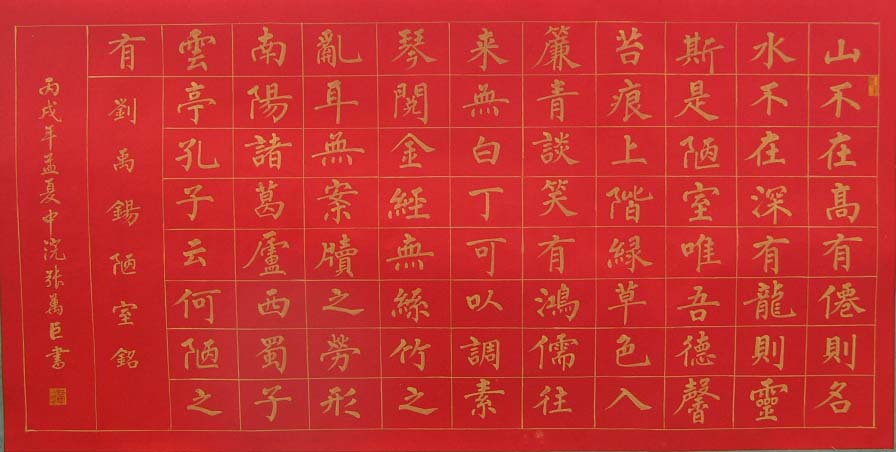 山不在高有僊則名
水不在深有龍則靈
斯是陋室唯吾德馨
苔痕上階緑草色入
簾青談笑有鴻儒往
来無白丁可以調素
琴閱金經無絲竹之
亂耳無案牘之勞形
南陽諸葛廬西蜀子
雲亭孔子云何陋之
有
劉禹錫陋室銘
丙戌年孟夏中浣張萬臣書